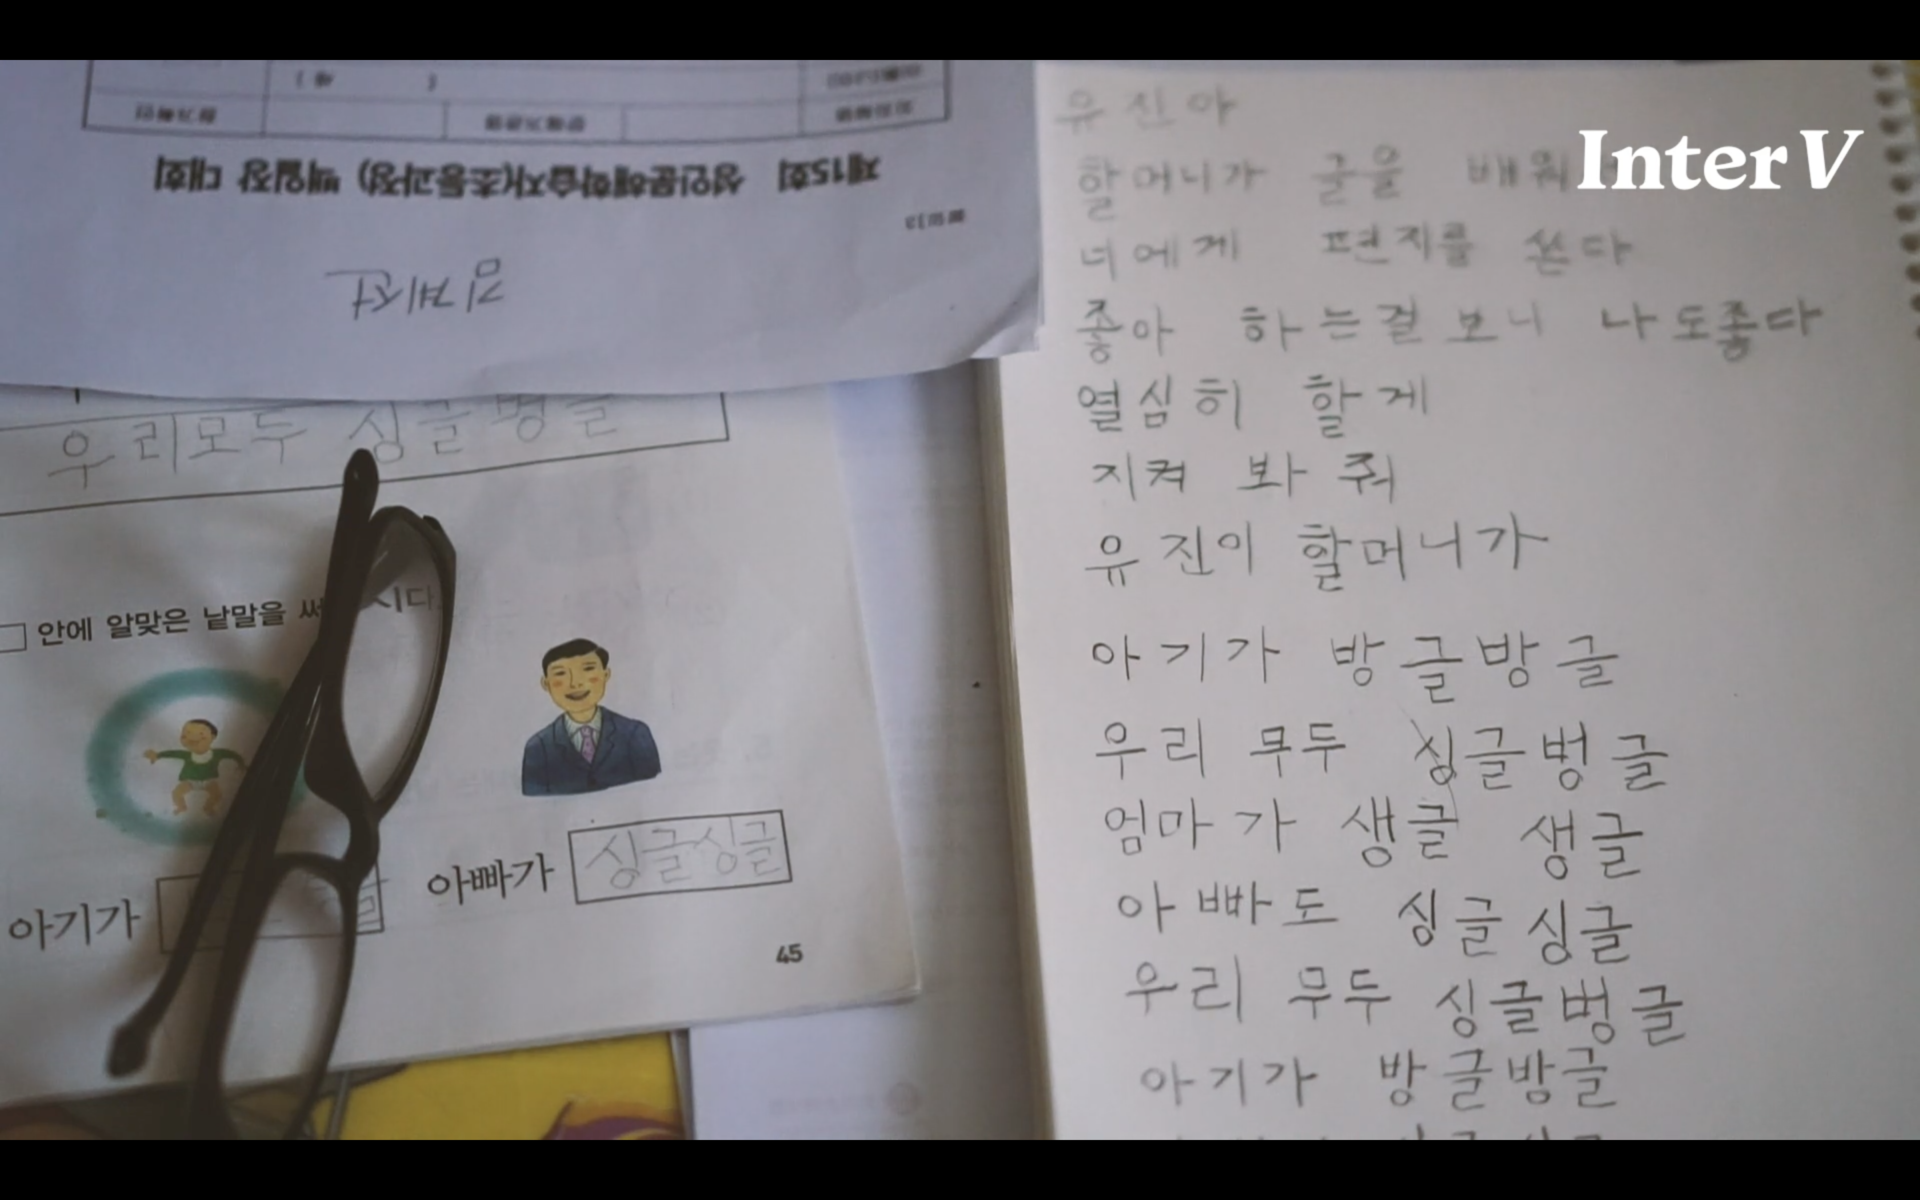 InterV
제15회 성인문해학습자(초등과정) 백일장 대회
김계선
우리모두 싱글벙글
안에 알맞은 낱말을
아기가
아빠가 싱글싱글
45
유진아
할머니가 글을 배워
너에게 편지를 쓴다
좋아 하는걸 보니 나도좋다
열심히 할게
지켜 봐 줘
유진이 할머니가
아기가 방글방글
우리 무두 싱글벙글
엄마가 생글 생글
아빠도 싱글싱글
우리 무두 싱글벙글
아기가 방글방글